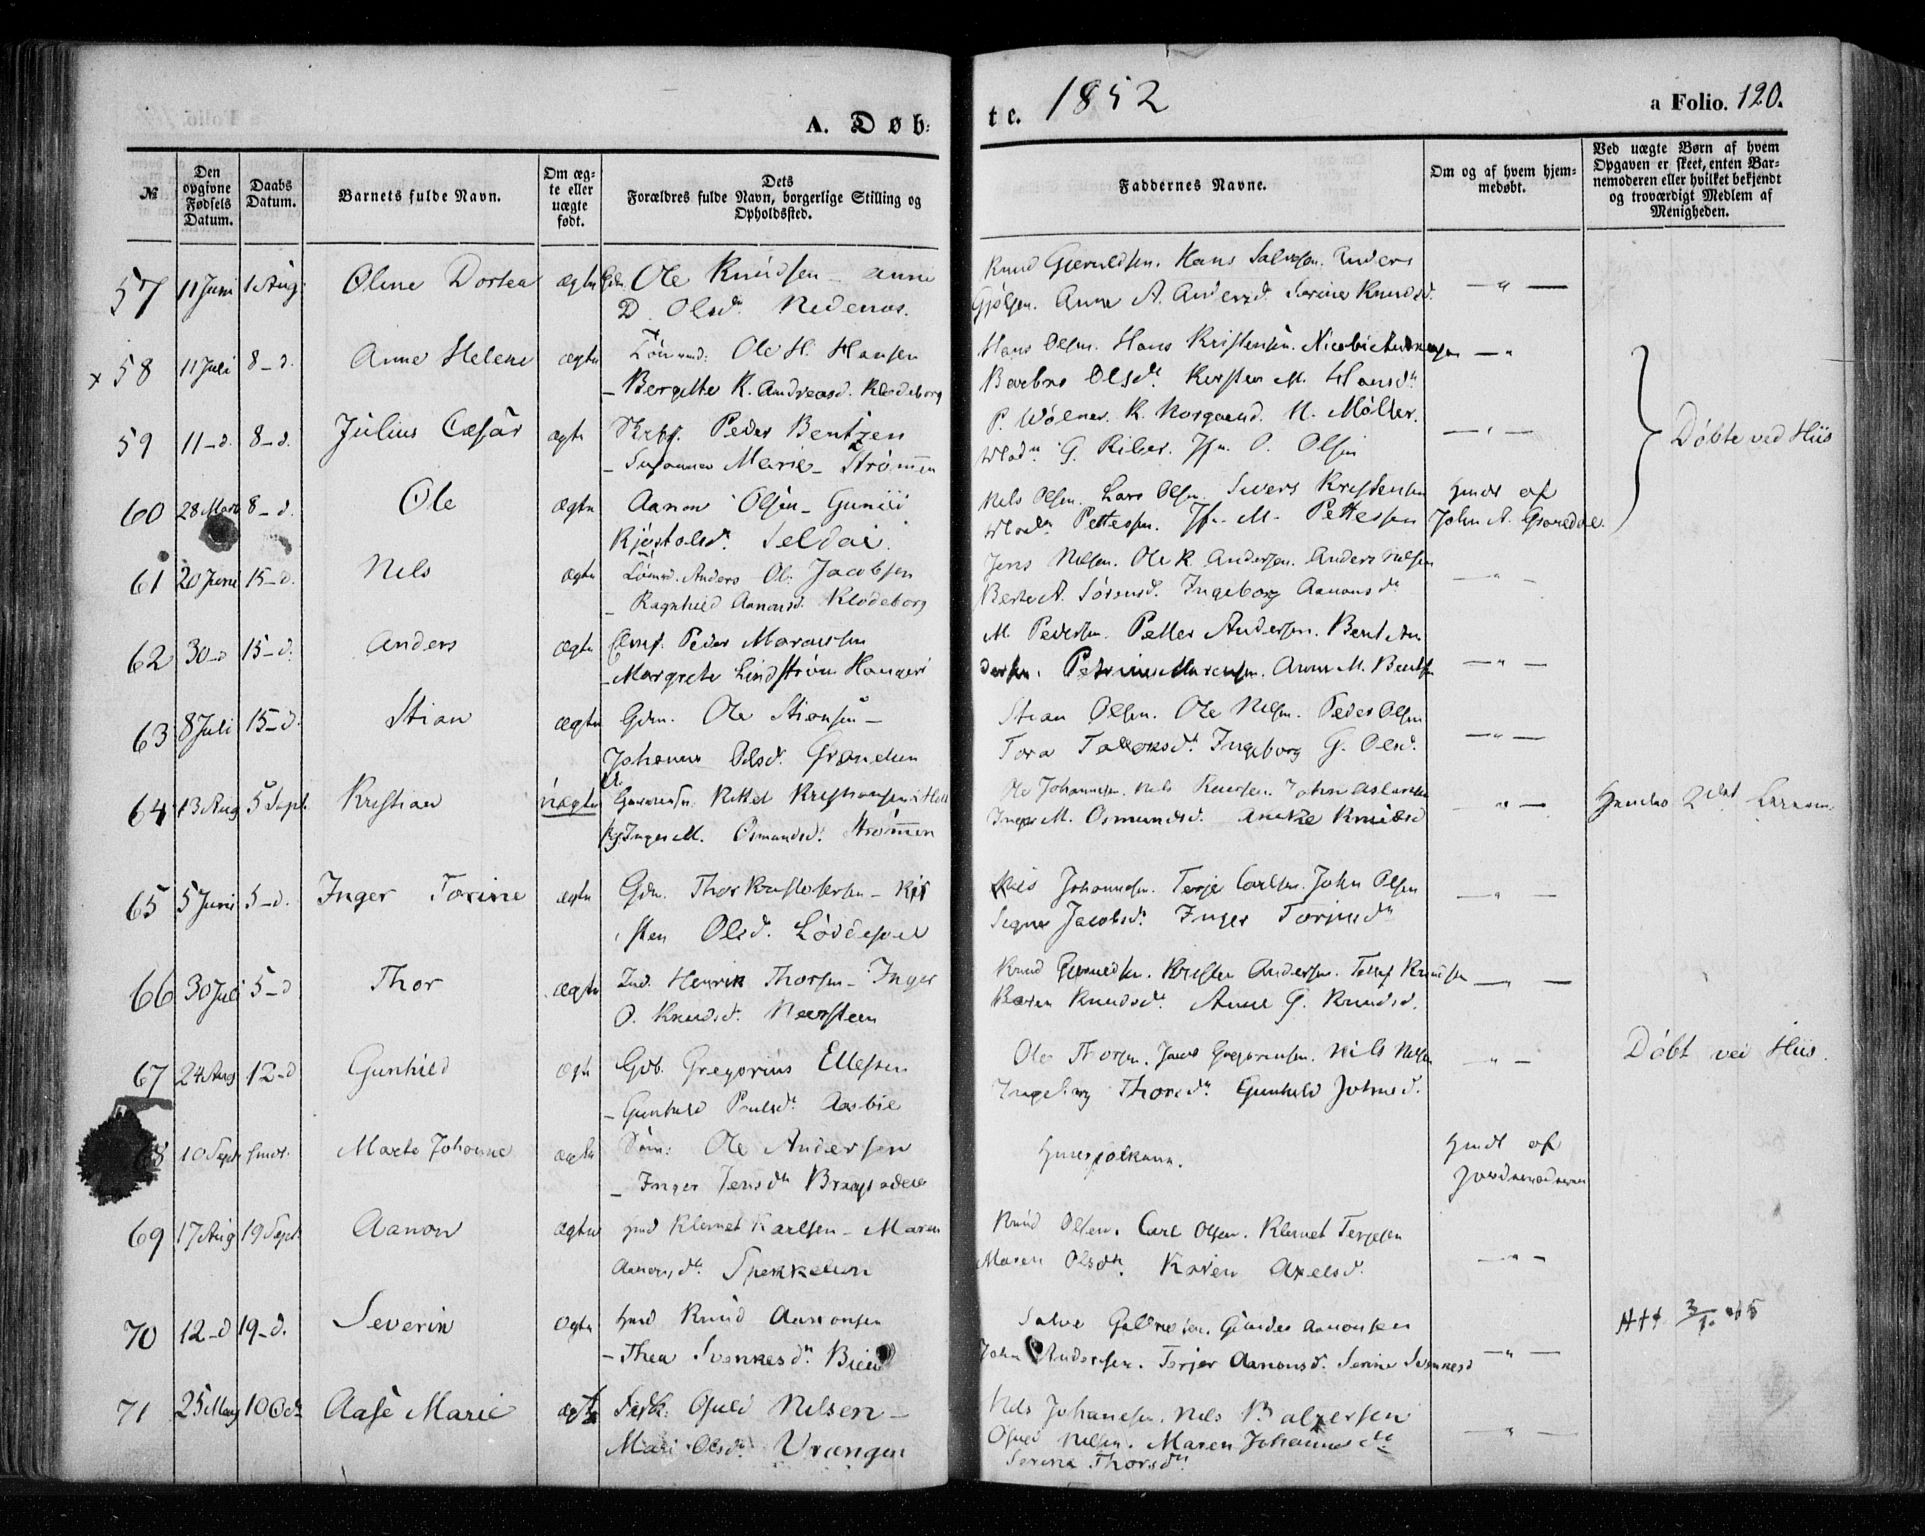 A. Døb-
te. 1852
a Folio. 120.
№
Den opgivne Fødsels Datum.
Daabs Datum.
Barnets fulde Navn.
Om æg-
te eller
uægte
født.
Dets
Forældres fulde Navn, borgerlige Stilling og
Opholdssted.
Faddernes Navne.
Om og af hvem hjem-
medøbt.
Ved uægte Børn af hvem
Opgaven er skeet, enten Bar-
nemoderen eller hvilket bekjendt
og troværdigt Medlem af
Menigheden.
57 11 Juni 1 Aug: Olene Dortea ægte Gdm. Ole Knudsen - Anne
D. Olsd. Nedenæs.
Knud Gjeruldsen. Hans Salvesen. Anders
Gjølsen. Anne A. Andersd. Serine Knudsd. — " —
x 58 11 Juli 8-d. Anne Helene ægte Tømmd: Ole H. Hansen
- Bergitte K. Andreasd. Klodeborg
Hans Olsen. Hans Kristensen. Nicolai Andreasen — "
Barbro Olsdtr Kirsten M. Hansdtr
59 11-d. 8-d. Julius Cæsar ægte Skrbf. Peder Bentzen
- Susanna Marie - Strømmen
P. Wølner. K. Norgaard. N. Møller.
Mad. G. Riber. Jfr. O. Olsen — " —
Døbte ved Hiis
60 28 Marts 8-d. Ole ægte Aanon Olsen - Gunild
Kjøstolsd. Seldal.
Nels Olsen. Lars Olsen. Sivers Kristensen
Mad. Pettersen. Jfr. M. Pettersen
Hmdt af
John A. Groredal.
61 20 Juni 15-d. Nels ægte Tømmd. Anders Ol: Jacobsen
- Ragnhild Aanonsd. Klodeborg
Jens Nelsen. Ole K. Andersen. Anders Nelsen
Berte A. Sørensd. Ingeborg Aanonsdtr — " —
62 30-d 15-d. Anders ægte Peder Marcussen
- Margrete Lindstrøm
M. Pedersen. Petter Andersen. Bent An
dersen. Petrine Marcussen. Anne M. Bentsen — " —
63 8 Juli 15-d. Stian ægte Gdm. Ole Stiansen -
Johanne Olsd. Grændsen
Stian Olsen. Ole Nelsen. Peder Olsen
Tora Tollaksd. Ingeborg G. Olsd. — " —
64 13 Aug 5 Sept Kristian uægte Kittel Kristiansen
Inger M. Osmundsd. Strømmen
Ole Johannesen. Nels Knudsen. John Aslaksen
Inger M. Osmundsd. Aneke Knudsd — " —
Hendes 2det Leierm.
65 5 Juni 5-d. Inger Torine ægte Gdm. Thor Kristofersen - Kir
sten Olsd. Løddesøl
Nils Johannesen. Terje Carlsen. John Olsen
Signe Jacobsd. Inger Torinesdtr — " —
66 30 Juli 5-d Thor ægte Ind. Henrik Thorsen - Inger
O. Knudsd. Neersteen
Knud Gjeruldsen. Kristen Andersen. Tellef Knudsen
Karen Knudsd. Anne G. Knudsd. — " —
67 24 Aug 12-d Gunhild ægte Gdb. Gregorius Ellefsen
- Gunhild Poulsd. Aasbie
Ole Thorsen. Jacob Gregoriussen. Nils Nilsen
Ingeborg Thorsd. Gunhild Johnsd. — " —
Døbt ved Hiis.
68 10 Sept hmdt. Marte Johanne ægte Søm: Ole Andersen
- Inger Jensdtr
Huusfolkene.
Hmdt af
Jordmoderen
69 17 Aug 19 Sept. Aanon ægte Hmd Klemet Karlsen - Maren
Aanonsdtr Spekkelien
Knud Olsen. Carl Olsen. Klemet Terjesen
Maren Olsdtr. Karen Axelsd. — " —
70 12-d 19-d. Severin ægte Hmd Knud Aanonsen
- Thea Svenkesd. Bie
Salve Gunder Aanonsen
John Andersen. Terjer Aanonsd. Serine Svenkesd — " —
Att 3/10 65
71 25 Mai 10 Oct Aase Marie ægte Osuld Nelsen -
Mari Olsdtr Vrængen
Nels Johanesen. Nels Balzersen
Osuld Nelsen. Maren Johannesdtr
Serine Thorsdtr. — " —